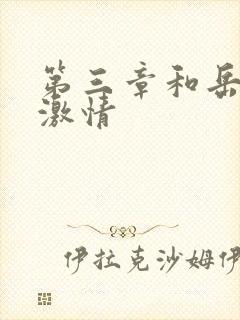 第三章和岳
激情
伊拉克沙姆伊